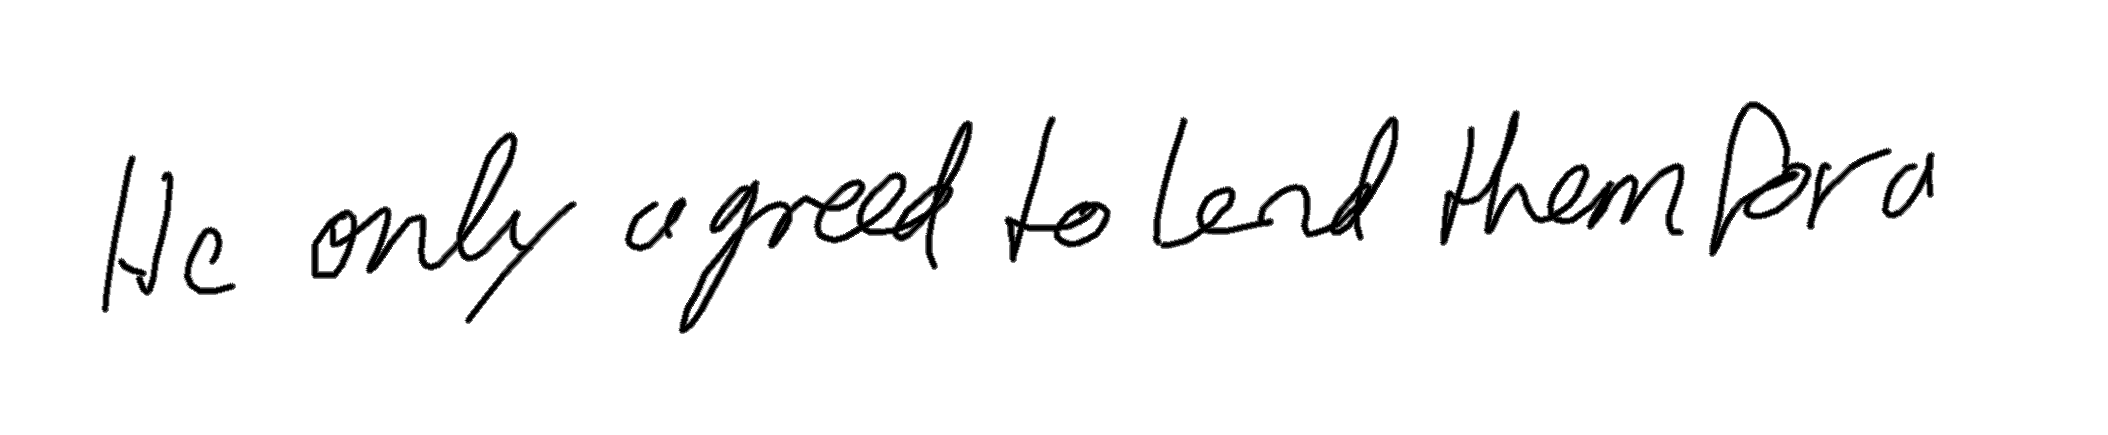 He only agreed to lend them for a